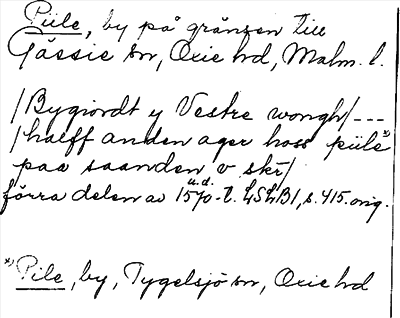 Pile, by på gränsen till
Gässie sn, Oxie hd, Malm. l.
/Bygiordt y Vestre wongh/ ---
/halff anden ager hoss piile x)
paa saanden v skr/
u.d.
förra delen av 1570-t. LSLB1, s. 415. orig.
x) Pile, by, Tygelsjö sn, Oxie hd